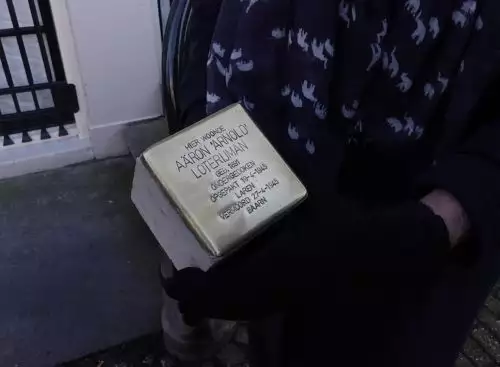 HIER WOONDE
AÄRON 'ARNOLD'
LOTERIJMAN
GEB. 1891
ONDERGEDOKEN
OPGEPAKT 19-4-1945
LAREN
VERMOORD 27-4-1945
BAARN